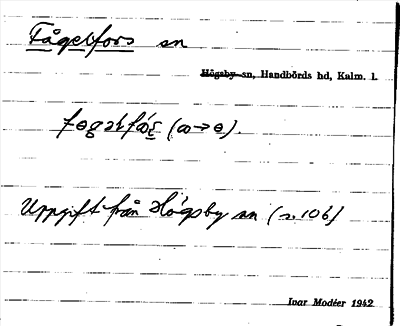 Fågelfors sn
Högsby sn, Handbörds hd, Kalm. l.
Uppgift från Högsby sn (s. 106)
Ivar Modéer 1942